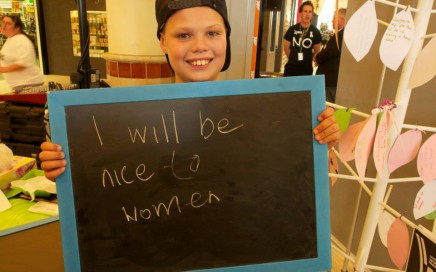 I will be
nice to
women
NO